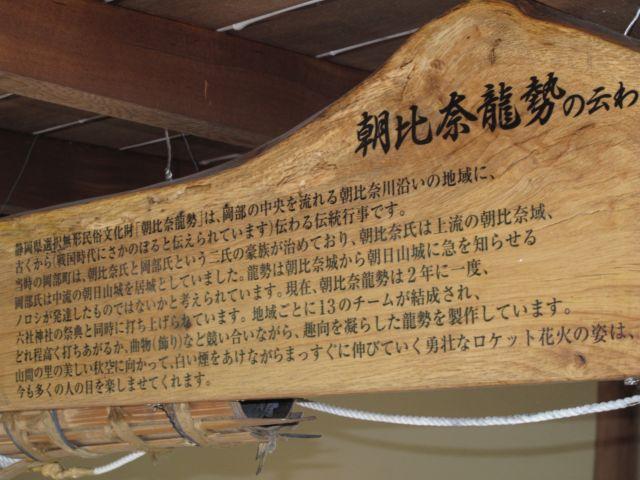 朝比奈龍勢の云わ
静岡県選択無形民俗文化財「朝比奈龍勢」は、岡部の中央を流れる朝比奈川沿いの地域に、
古くから(戦国時代にさかのぼると伝えられています)伝わる伝統行事です。
当時の岡部町は、朝比奈氏と岡部氏という二氏の豪族が治めており、朝比奈氏は上流の朝比奈城、
岡部氏は中流の朝日山城を居城としていました。龍勢は朝比奈城から朝日山城に急を知らせる
ノロシが発達したものではないかと考えられています。現在、朝比奈龍勢は2年に一度、
六社神社の祭典と同時に打ち上げられています。地域ごとに13のチームが結成され、
どれ程高く打ちあがるか、曲物(飾り)など競い合いながら、趣向を凝らした龍勢を製作しています。
山間の里の美しい秋空に向かって、白い煙をあけながらまっすぐに伸びていく勇壮なロケット花火の姿は、
今も多くの人の目を楽しませてくれます。